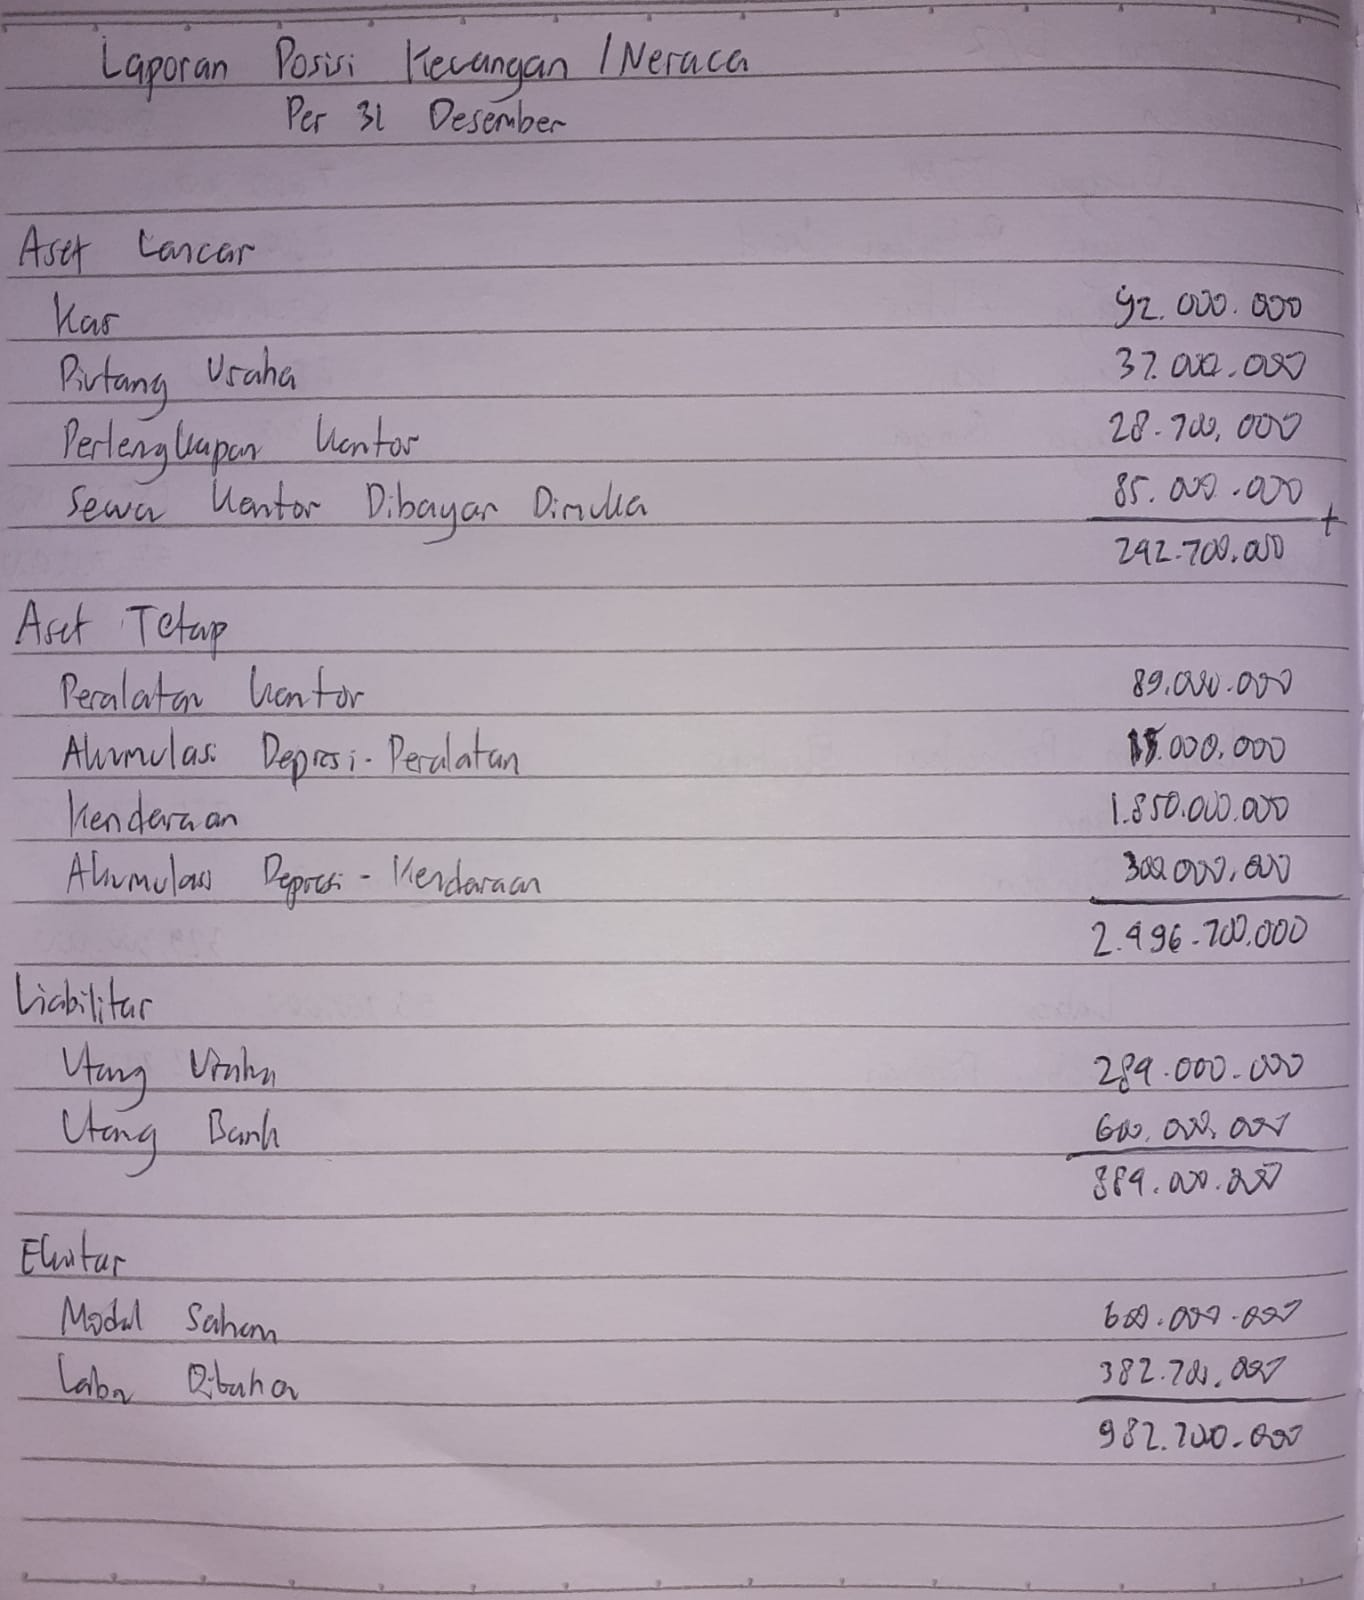 Laporan Posisi Keuangan / Neraca
Per 31 Desember
Aset Lancar
Kas 92.000.000
Piutang Usaha 37.000.000
Perlengkapan Kantor 28.700.000
Sewa Kantor Dibayar Dimuka 85.000.000 +
242.700.000
Aset Tetap
Peralatan Kantor 89.000.000
Akumulasi Depresi - Peralatan 15.000.000
Kendaraan 1.850.000.000
Akumulasi Depresi - Kendaraan 300.000.000
2.496.700.000
Liabilitas
Utang Usaha 284.000.000
Utang Bank 600.000.000
884.000.000
Ekuitas
Modal Saham 600.000.000
Laba Ditahan 382.700.000
982.700.000